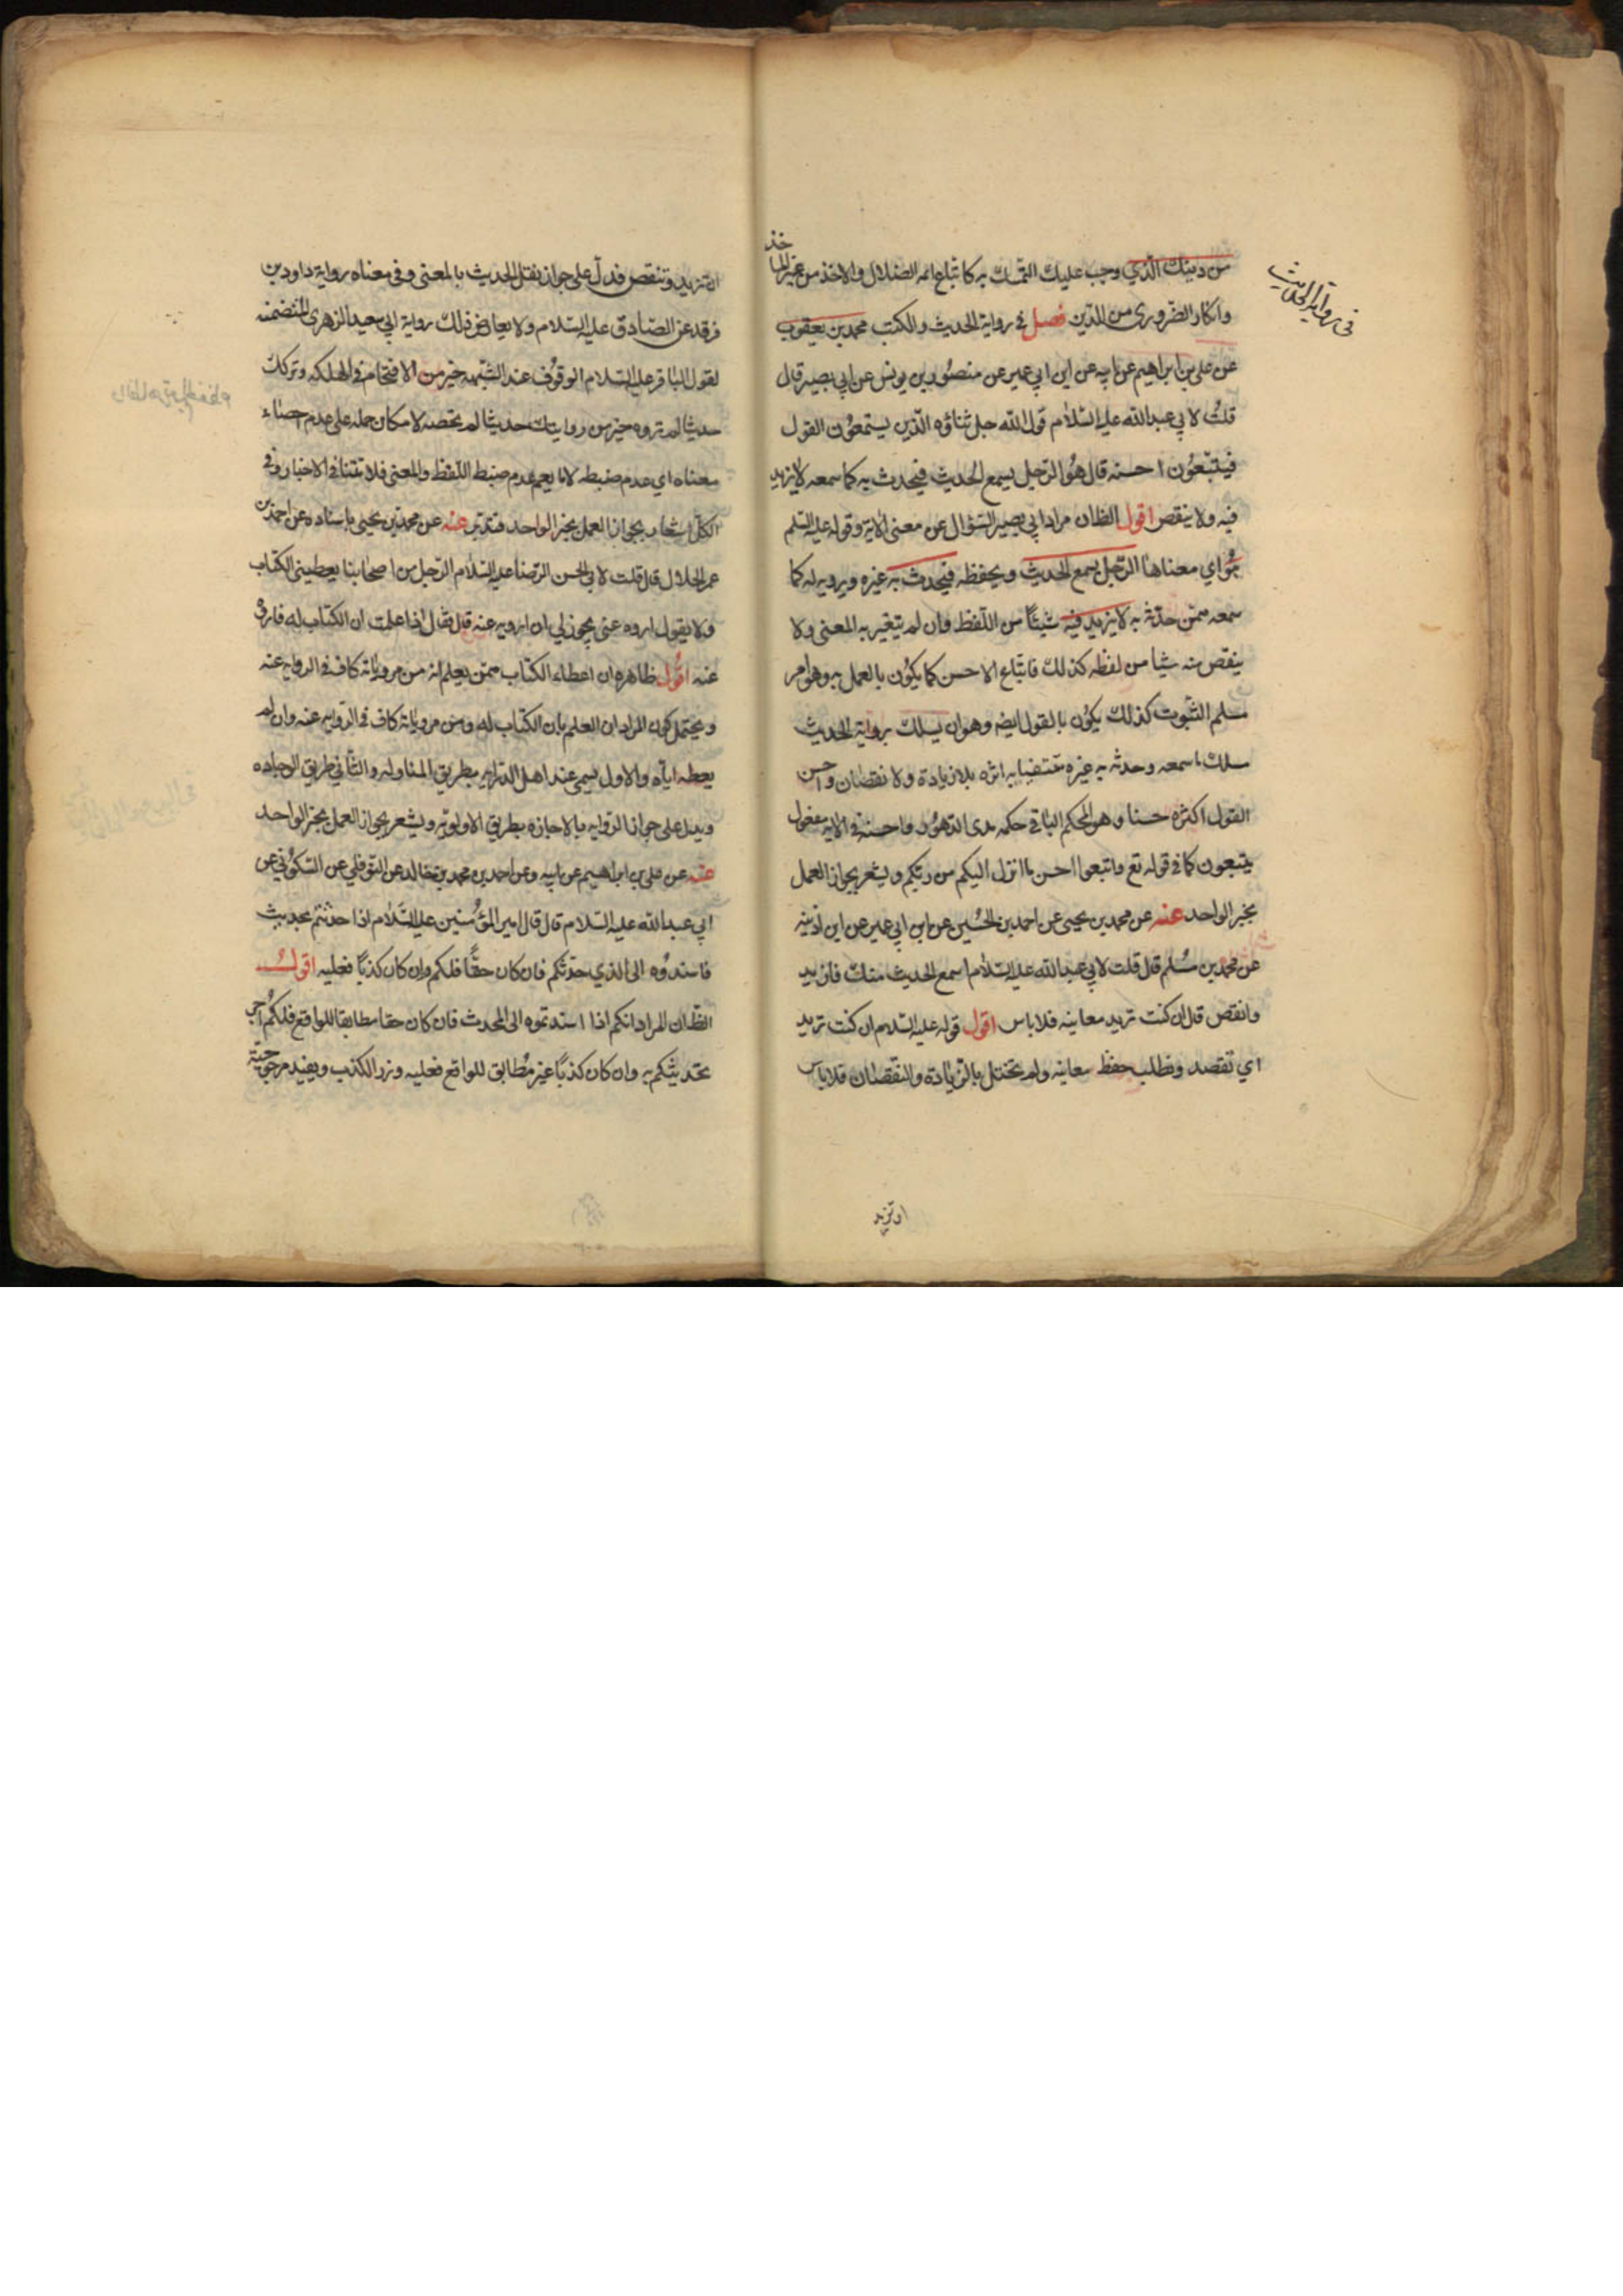 من دينك الذي وجب عليك التمسك به كاتباع ائمه الضلال والاخذ من غير الماخذ
وانكار الضروري من الدين فصل في رواية الحديث والكتب محمد بن يعقوب
عن علي بن ابراهيم عن ابيه عن ابن ابي عمير عن منصور بن يونس عن ابي بصير قال
قلت لابي عبد الله عليه السلام قول الله جل ثناؤه الذين يستمعون القول
فيتبعون احسنه قال هو الرجل يسمع الحديث فيحدث به كما سمعه لا يزيد
فيه ولا ينقص اقول الظان مراد ابي بصير السؤال عن معنى الاية وقوله عليه السلم
هو اي معناها الرجل يسمع الحديث ويحفظه فيحدث به غيره ويرويه له كما
سمعه ممن حدثه به لا يزيد فيه شيئا من اللفظ وان لم يتغير به المعنى ولا
ينقص منه شيا من لفظه كذلك فاتباع الاحسن كما يكون بالعمل به وهو امر
مسلم الثبوت كذلك يكون بالقول ايضه وهو ان يسلك برواية الحديث
مسلك ما سمعه وحدثه به غيره مقتفيا به اثره بلا زيادة ولا نقصان واحسن
القول اكثره حسنا وهو المحكم الباقي حكمه مدى الدهور واحسنه في الاية مفعول
يتبعون كما في قوله تع واتبعوا احسن ما انزل اليكم من ربكم ويشعر بجواز العمل
بخبر الواحد عنه عن محمد بن يحيى عن احمد بن الحسين عن ابن ابي عمير عن ابن اذينه
عن محمد بن مسلم قال قلت لابي عبد الله عليه السلام اسمع الحديث منك فازيد
وانقص قال ان كنت تريد معانيه فلا باس اقول قوله عليه السلام ان كنت تريد
اي تقصد وتطلب حفظ معانيه ولم تختل بالزيادة والنقصان فلا باس
في رواية الحديث
ان تزيد
ان تزيد وتنقص فدل على جواز نقل الحديث بالمعنى وفي معناه رواية داود بن
فرقد عن الصادق عليه السلام ولا يعارض ذلك رواية ابي سعيد الزهري المتضمنه
لقول الباقر عليه السلام الوقوف عند الشبهه خير من الاقتحام في الهلكه وتركك
حديثا لم تروه خير من روايتك حديثا لم تحصه لامكان حمله على عدم احصاء
معناه اي عدم ضبطه لانا يعم عدم ضبط اللفظ والمعنى فلا تتنافى الاخبار وفي
الكل اشعار بجواز العمل بخبر الواحد فتدبر عنه عن محمد بن يحيى باسناده عن احمد بن
عمر الحلال قال قلت لابي الحسن الرضا عليه السلام الرجل من اصحابنا يعطيني الكتاب
ولا يقول اروه عني يجوز لي ان ارويه عنه قال فقال اذا علمت ان الكتاب له فاروه
عنه اقول ظاهره ان اعطاء الكتاب ممن يعلم انه من مروياته كاف في الروايه عنه
ويحتمل كون المراد ان العلم بان الكتاب له ومن مروياته كاف في الروايه عنه وان لم
يعطه اياه والاول يسمى عند اهل الدرايه بطريق المناوله والثاني طريق الوجاده
ويدل على جواز الروايه بالاجازه بطريق الاولويه ويشعر بجواز العمل بخبر الواحد
عنه عن علي بن ابراهيم عن ابيه وعن احمد بن محمد بن خالد عن النوفلي عن السكوني عن
ابي عبد الله عليه السلام قال قال امير المؤمنين عليه السلام اذا حدثتم بحديث
فاسندوه الى الذي حدثكم فان كان حقا فلكم وان كان كذبا فعليه اقول
الظان المراد انكم اذا اسندتموه الى المحدث فان كان حقا مطابقا للواقع فلكم اجر
تحديثكم به وان كان كذبا غير مطابق للواقع فعليه وزر الكذب ويفيد مرجوحيته